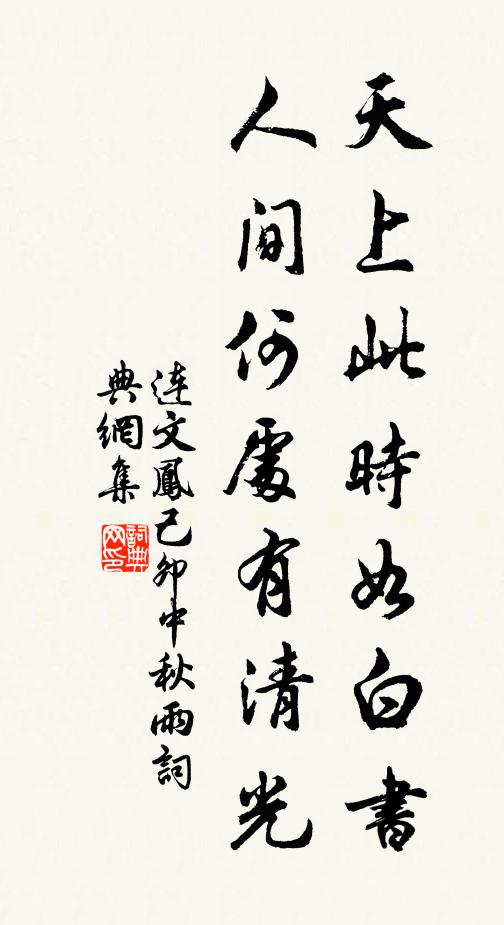 天上此時如白書
人間何處有清光
連文鳳己卯中秋雨詞
典網集
詞典
网印